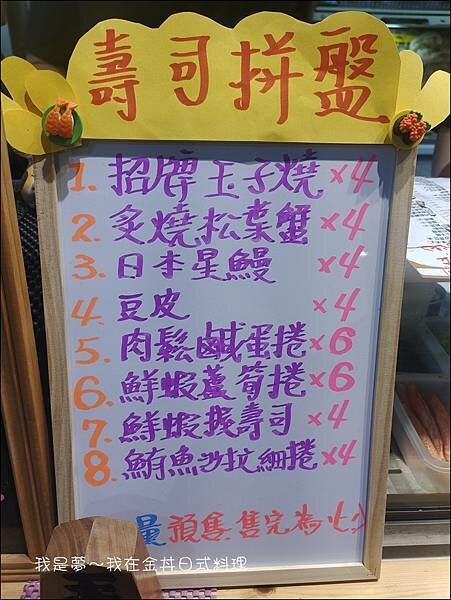 壽司拼盤
1. 招牌玉子燒 ×4
2. 炙燒松葉蟹 ×4
3. 日本星鰻 ×4
4. 豆皮 ×4
5. 肉鬆鹹蛋捲 ×6
6. 鮮蝦蘆筍捲 ×6
7. 鮮蝦握壽司 ×4
8. 鮪魚沙拉細捲 ×4
量預售,售完為止
我是夢~我在金丼日式料理